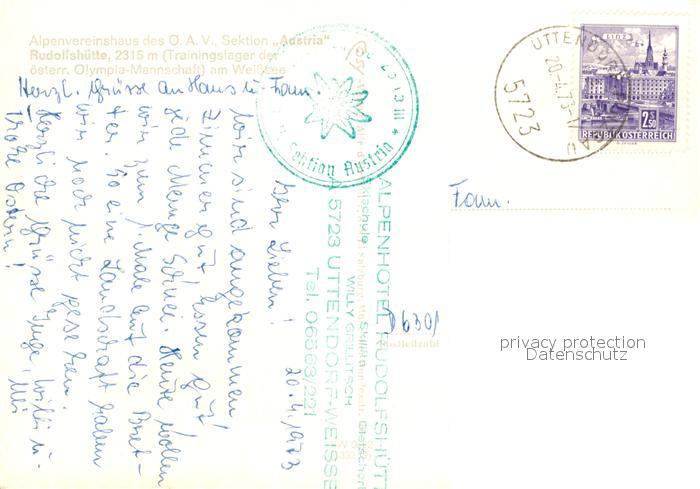 Alpenvereinshaus des Ö. A. V., Sektion „Austria"
Rudolfshütte, 2315 m (Trainingslager der
österr. Olympia-Mannschaft) am Weißsee
Herzl. Grüsse an Haus u. Fam.
20.4.1973
Ihr Lieben!
Wir sind angekommen,
Zimmer gut, Essen gut,
jede Menge Schnee. Heute wollen
wir zum 1. Male auf die Bret-
ter. So eine Landschaft haben
wir noch nicht gesehen.
Herzliche Grüsse Inge, Willi u.
Uli
Frohe Ostern!
Sektion Austria
ALPENHOTEL RUDOLFSHÜTTE
WILLY GRILLITSCH
5723 UTTENDORF-WEISSSEE
Tel. 06563/221
UTTENDORF
20.-4.73-
5723
LINZ
2.50
REPUBLIK ÖSTERREICH
Fam.
D 6301
Postleitzahl
privacy protection
Datenschutz